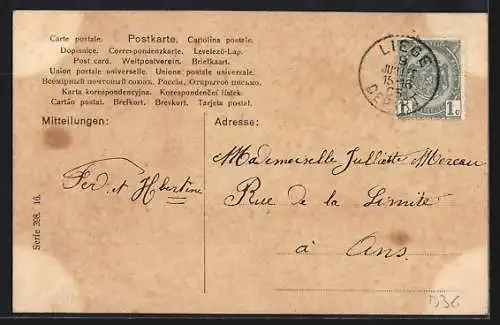 Carte postale. Postkarte. Cartolina postale.
Dopisnice. Correspondenzkarte. Levelező-Lap.
Post card. Weltpostverein. Briefkaart.
Union postale universelle. Unione postale universale.
Всемірный почтовый союзъ. Россія, Открытое письмо.
Karta korespondencyjna. Korespondenční lístek.
Cartão postal. Brefkort. Brevkort. Tarjeta postal.
LIEGE
9
1 1c
Mitteilungen:
Adresse:
Mademoiselle Julliette Mézeau
Fer. et Hbertine
Rue de la Limite
à Ans.
Serie 308. 16.